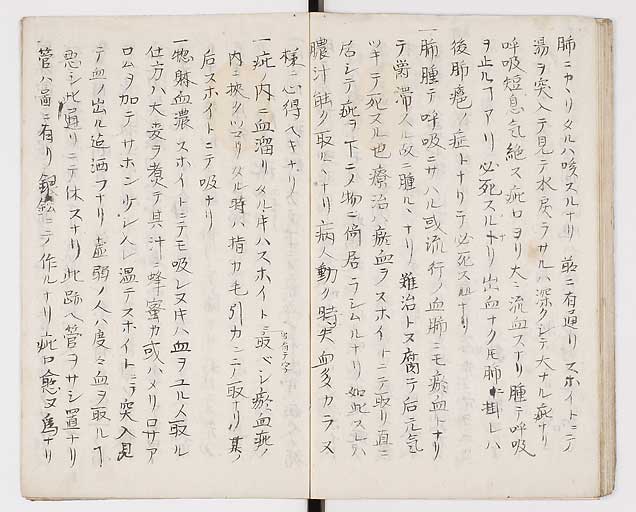 肺ニカヽリタルハ咳スルナリ 前ニ有通リ スホイトニテ
湯ヲ突入テ見テ水戻ラサルハ深クシテ大ナル疵ナリ
呼吸短息シ気絶ス疵口ヨリ大ニ流血スナリ腫テ呼吸
ヲ止ルヿアリ必死スルナリ 出血ナク圧肺ニ掛レハ
後肺癰ノ症トナリテ必死スルナリ
一肺腫テ呼吸ニサハル或流行ノ血肺ニモ瘀血トナリ
テ欝滞スル故ニ腫ルヽナリ 難治トス腐テ后元気
ツキテ死スル也療治ハ瘀血ヲスホイトニテ取リ直ニ
居シテ疵ヲ下ニノ物ニ倚居ラシムルナリ 如此スレハ
膿汁能ク取ルヽナリ 病人動ク時失血多カラス
様ニ心得ヘキナリ
一疵ノ内ニ血溜リタル片ハスホイトニ ベシ瘀血疵ノ
内ニ狭クツマリタル時ハ指カ毛引カンニテ取ナリ其ノ
后スホイトニテ吸ナリ
一惣躰血濃スホイトニテモ吸レヌ片ハ血ヲユルメ取ル
仕方ハ大麦ヲ煮テ其汁ニ蜂蜜カ或ハメリロサア
ロムヲ加テサホン少シ入レ温テスホイトニテ突入見
テ血ノ出ル迄洒フナリ 虚弱ノ人ハ度々血ヲ取ルヿ
悪シ此通リニテ休スナリ此跡ヘ管ヲサシ置ナリ
管ハ図ニ有リ銀鉛ニテ作ルナリ 疵口愈又為ナリ